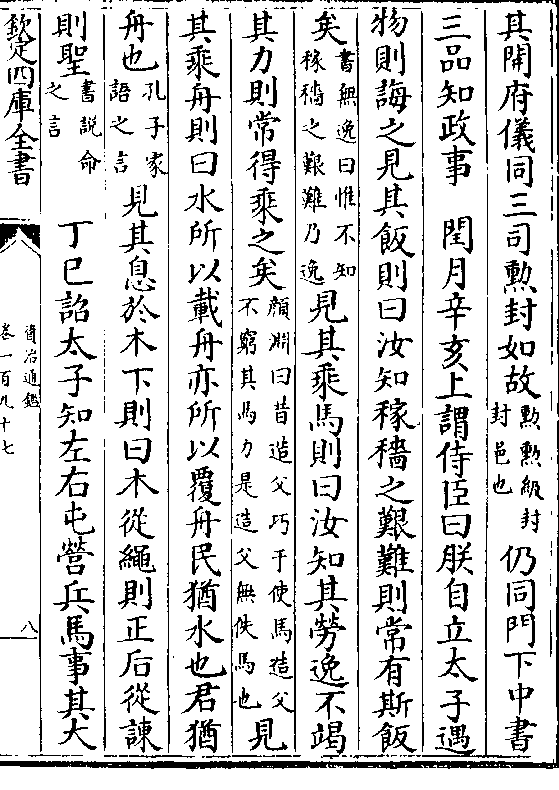 其開府儀同三司勲封如故勲勲級封封邑也仍同門下中書
三品知政事　閏月辛亥上謂侍臣曰朕自立太子遇
物則誨之見其飯則曰汝知稼穡之艱難則常有斯飯
矣書無逸曰惟不知稼穡之艱難乃逸見其乗馬則曰汝知其勞逸不竭
其力則常得乗之矣顔淵曰昔造父巧于使馬造父不窮其馬力是造父無佚馬也見
其乗舟則曰水所以載舟亦所以覆舟民猶水也君猶
舟也孔子家語之言見其息於木下則曰木從繩則正后從諫
則聖書説命之言　丁巳詔太子知左右屯營兵馬事其大
欽定四庫全書
資治通鑑
卷一百九十七
八